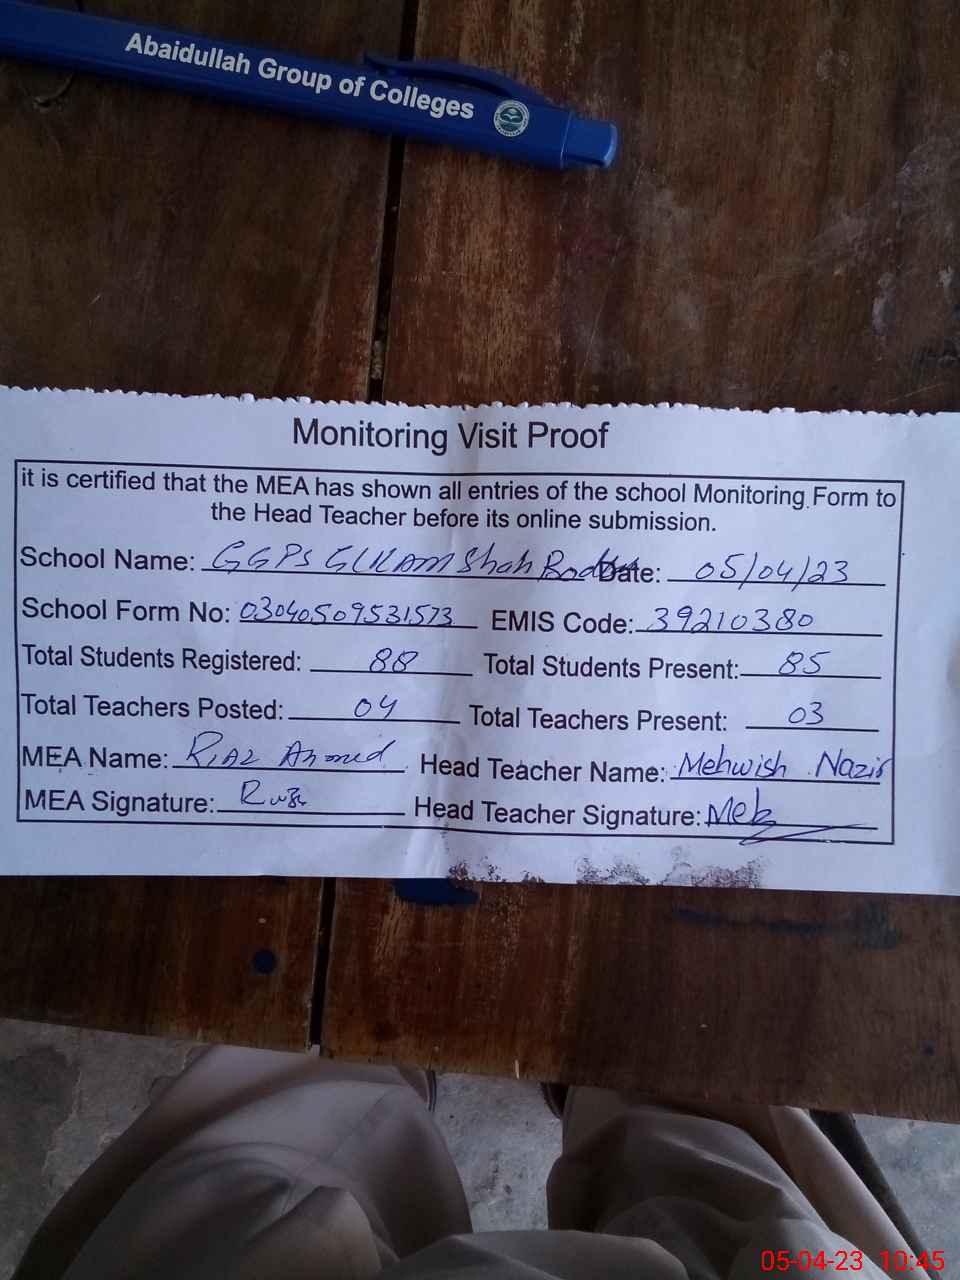 Abaidullah Group of Colleges
Monitoring Visit Proof
it is certified that the MEA has shown all entries of the school Monitoring Form to
the Head Teacher before its online submission.
School Name: GGPS Shah Date: 05/04/23
School Form No: 03040509531573 EMIS Code: 39210380
Total Students Registered: 88 Total Students Present: 85
Total Teachers Posted: 04 Total Teachers Present: 03
MEA Name: Riaz Ahmed Head Teacher Name: Mehwish Nazir
MEA Signature: Head Teacher Signature: Meh
05-04-23 10:45